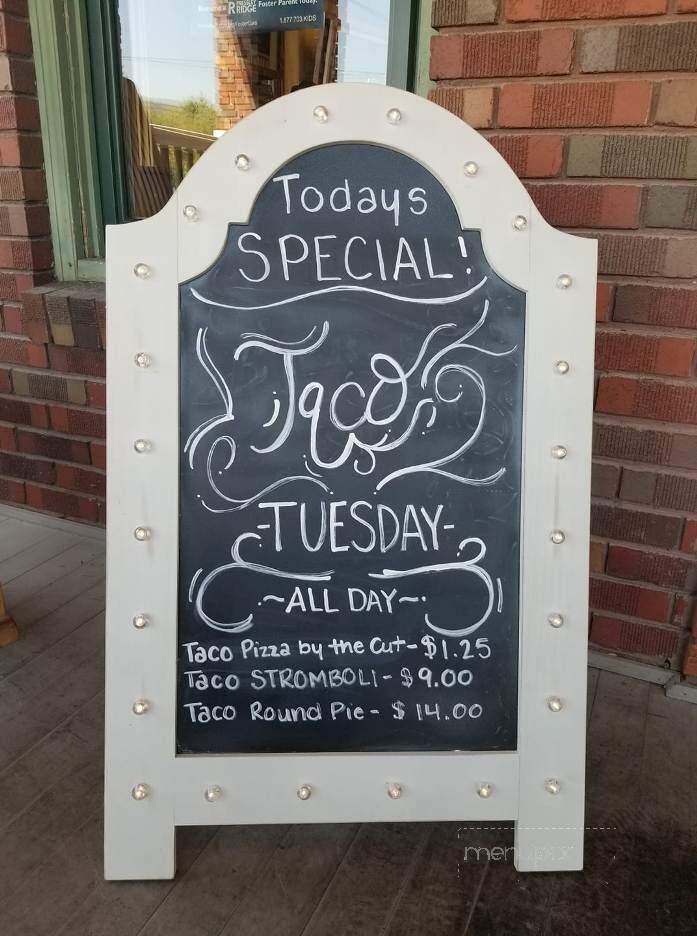 PRESSLEY
RIDGE
Foster Parent Today.
1.877.703.KIDS
Todays
SPECIAL!
Taco
-TUESDAY-
~ALL DAY~
Taco Pizza by the Cut-$1.25
Taco STROMBOLI-$9.00
Taco Round Pie-$14.00
menupix